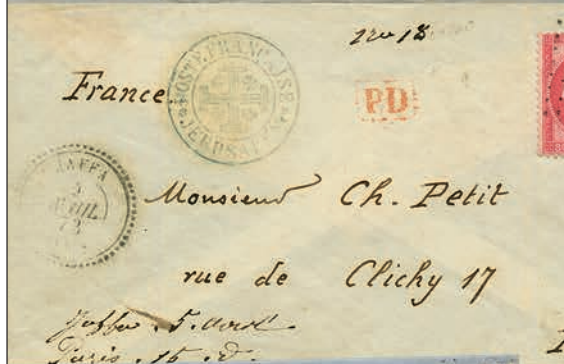 France
POSTE FRANÇAISE
JERUSALEM
PD
JAFFA
5
AVRIL
Monsieur Ch. Petit
rue de Clichy 17
Jaffa . 5. avril
Paris . 15 . d.